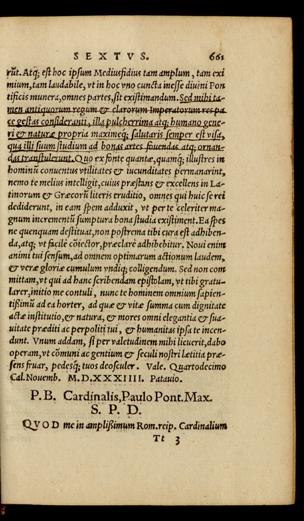 SEXTVS. 661
rũt. Atq; est hoc ipsum Mediusfidius tam amplum, tam exi
mium, tam laudabile, vt in hoc vno cuncta inesse diuini Pon
tificis munera, omnes partes, sit existimandum. Sed mihi ta-
men antiquorum regum & clarorum Imperatorum res pa
ce gestas consideranti, illa pulcherrima atq; humano gene-
ri & naturæ propria maximeq; salutaris semper est visa,
qua illi suum studium ad bonas artes fouendas atq; ornan-
das transtulerunt. Quo ex fonte quantæ, quamq; illustres in
hominũ conuentus vtilitates & iucunditates permanarint,
nemo te melius intelligit, cuius præstans & excellens in La-
tinorum & Græcorũ literis eruditio, omnes qui huic se rei
dediderint, in eam spem adduxit, vt per te celeriter ma-
gnum incrementũ sumptura bona studia existiment. Ea spes
ne quenquam destituat, non postrema tibi cura est adhiben-
da, atq; vt facilè cõiector, præclarè adhibebitur. Noui enim
animi tui sensum, ad omnem optimarum actionum laudem,
& veræ gloriæ cumulum vndiq; colligendum. Sed non com
mittam, vt qui ad hanc scribendam epistolam, vt tibi gratu-
larer, initio me contuli, nunc te hominem omnium sapien-
tissimũ ad ea horter, ad quæ & vitæ summa cum dignitate
actæ institutio, & natura, & mores omni elegantia & sua-
uitate præditi ac perpoliti tui, & humanitas ipsa te incen-
dunt. Vnum addam, si per valetudinem mihi licuerit, dabo
operam, vt cõmuni ac gentium & seculi nostri lætitia præ-
sens fruar, pedesq; tuos deosculer. Vale. Quartodecimo
Cal. Nouemb. M.D.XXXIIII. Patauio.
P.B. Cardinalis, Paulo Pont. Max.
S. P. D.
QVOD me in amplissimum Rom. reip. Cardinalium
Tt 3